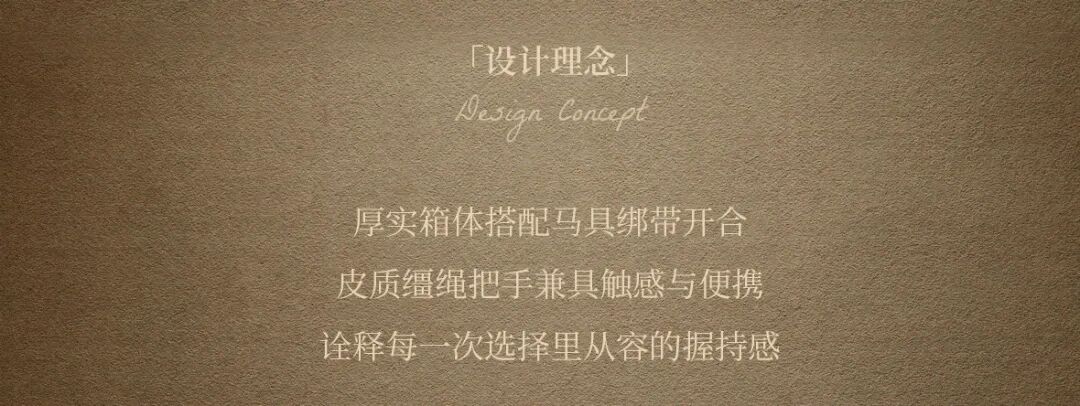 「设计理念」
Design Concept
厚实箱体搭配马具绑带开合
皮质缰绳把手兼具触感与便携
诠释每一次选择里从容的握持感